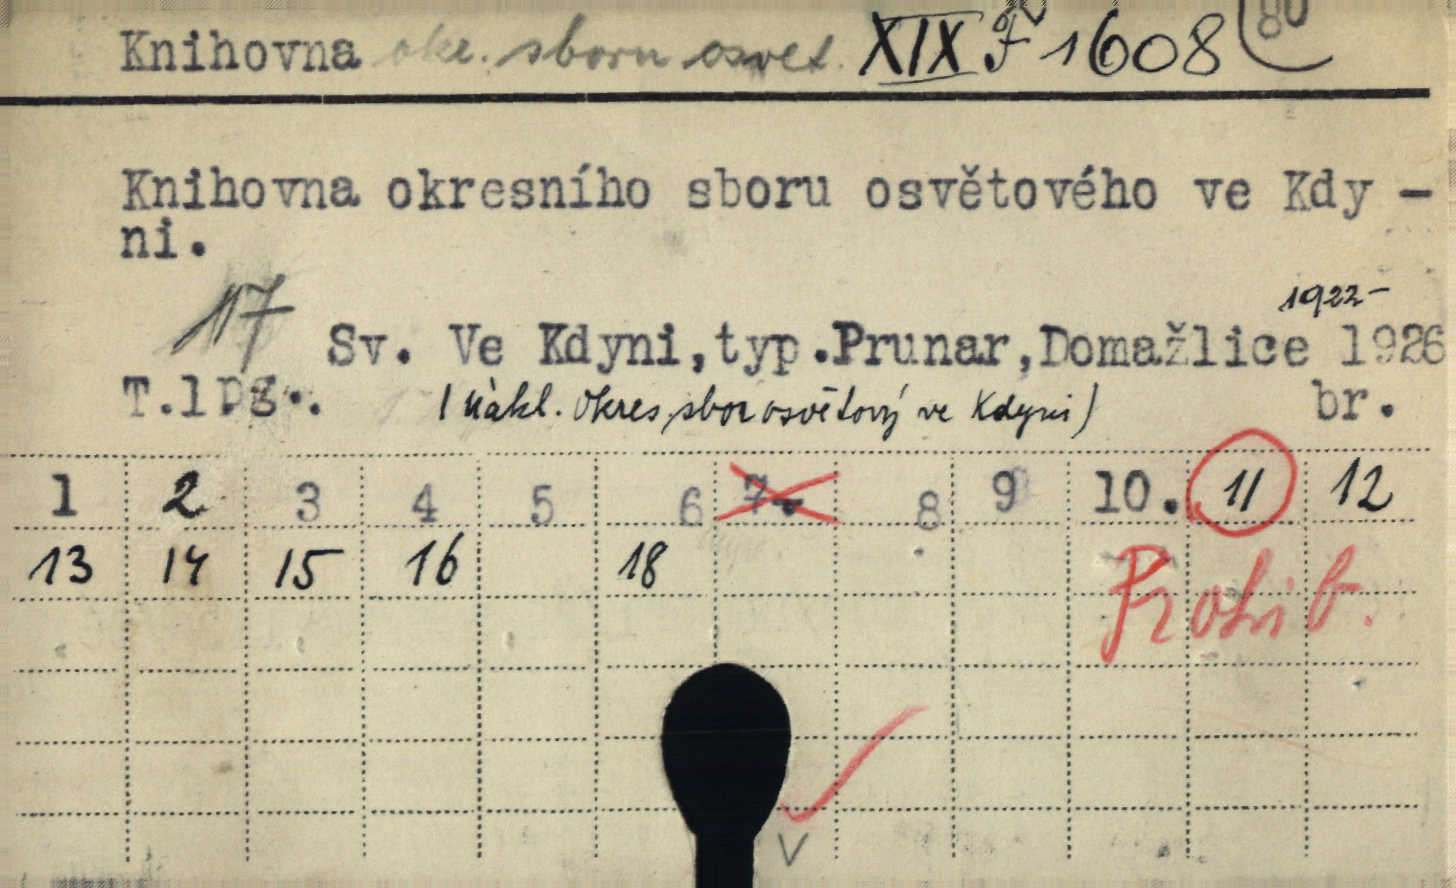 Knihovna okr. sboru osvět. XIX F 1608 80
Knihovna okresního sboru osvětového ve Kdy –
ni.
1922–
17 Sv. Ve Kdyni,typ.Prunar,Domažlice 1926
T.1 (Nákl. Okres. sbor osvětový ve Kdyni) br.
1 2 3 4 5 6 7. 8 9 10. 11 12
13 14 15 16 18
Prohib.
V